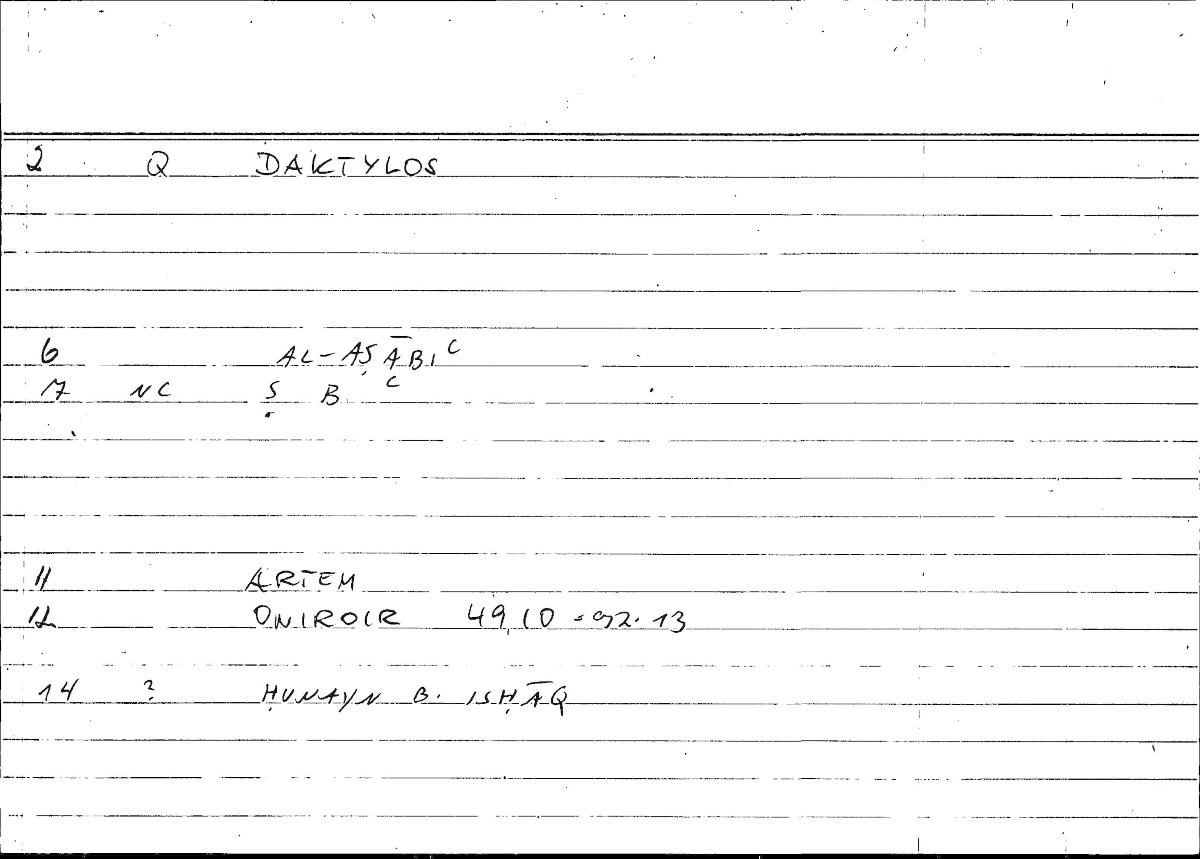 2 Q DAKTYLOS
6 AL-AṢĀBIʿ
7 NC Ṣ B ʿ
11 ARTEM
12 ONIROIR 49,10 = 92.13
14 ? ḤUNAYN B. ISḤĀQ